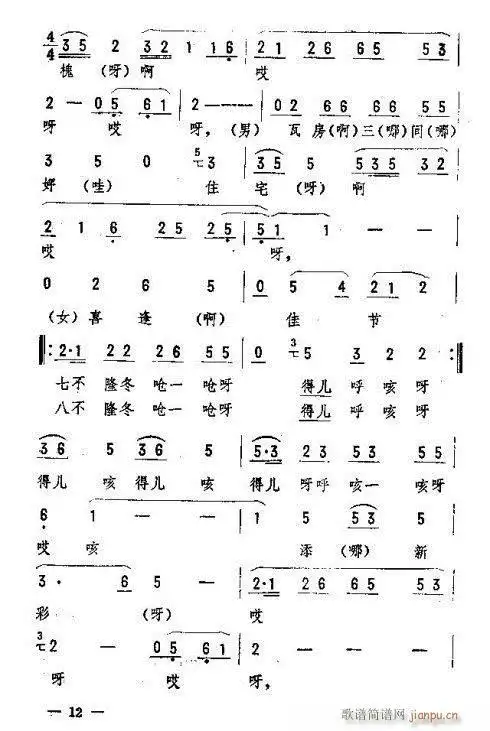 4/4 3 5 2 3 2 1 1 6 | 2 1 2 6 6 5 5 3 |
槐 (呀)啊 哎
2 — 0 5 6 1 | 2 — — — | 0 2 6 6 6 6 6 6 |
呀 哎 呀, (男) 瓦 房(啊)三(哪)间(哪)
3 5 0 5 3 | 3 5 5 5 3 5 3 2 |
好 (哇) 住 宅 (呀) 啊
2 1 6 2 5 2 5 | 5 1 1 — — |
哎 呀,
0 2 6 5 | 0 5 4 2 1 2 |
(女) 喜 逢 (啊) 佳 节
‖: 2·1 2 2 2 6 5 5 | 0 3 5 3 2 2 :‖
七不 隆冬 呛一 呛呀 得儿 呼 咳 呀
八不 隆冬 呛一 呛呀 得儿 呼 咳 呀
3 6 5 3 6 5 | 5·3 2 3 5 3 5 5 |
得儿 咳 得儿 咳 得儿 呀呼 咳一 咳呀
6 1 — — | 1 5 5 3 5 |
哎 咳 添 (哪) 新
3 · 6 5 — | 2·1 2 6 6 5 5 3 |
彩 (呀) 哎
3 2 — 0 5 6 1 | 2 — — |
呀 哎 呀,
— 12 —
歌谱简谱网 jianpu.cn